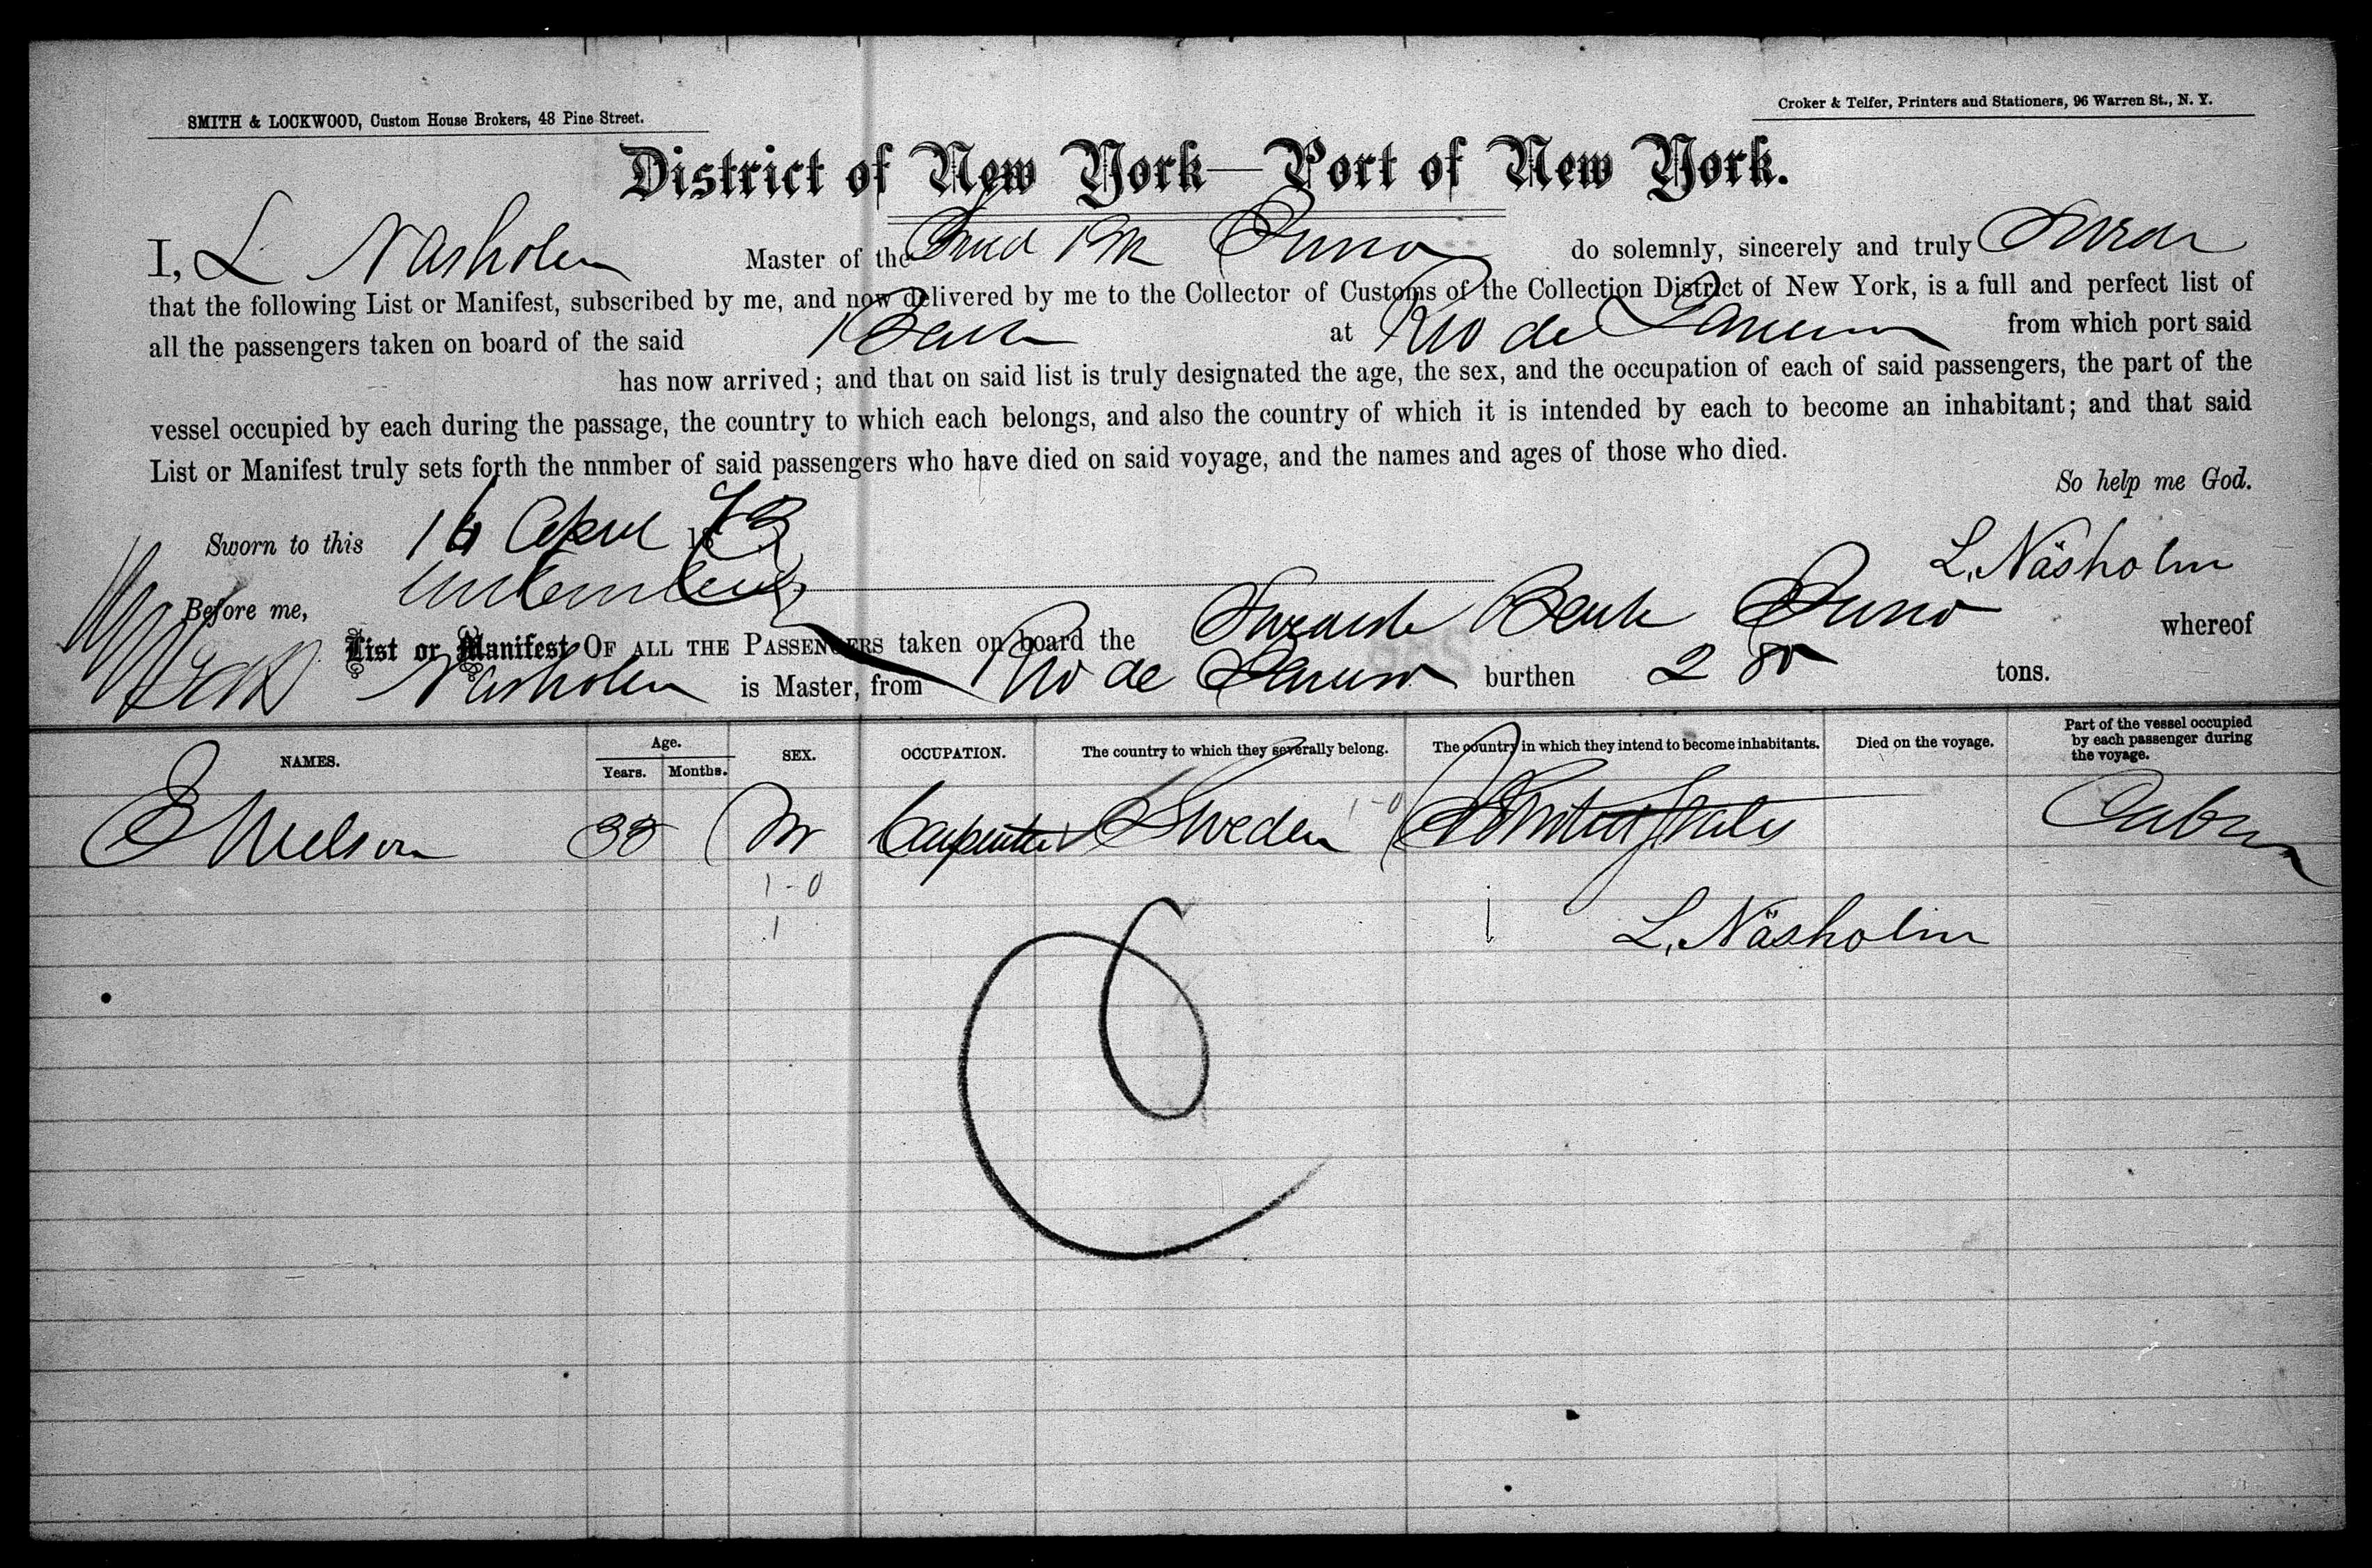 SMITH & LOCKWOOD, Custom House Brokers, 48 Pine Street.
Croker & Telfer, Printers and Stationers, 96 Warren St., N. Y.
District of New York—Port of New York.
I, L Nasholm Master of the Swed Bk Juno do solemnly, sincerely and truly Swear
that the following List or Manifest, subscribed by me, and now delivered by me to the Collector of Customs of the Collection District of New York, is a full and perfect list of
all the passengers taken on board of the said Bark at Rio de Janeiro from which port said
has now arrived; and that on said list is truly designated the age, the sex, and the occupation of each of said passengers, the part of the
vessel occupied by each during the passage, the country to which each belongs, and also the country of which it is intended by each to become an inhabitant; and that said
List or Manifest truly sets forth the nnmber of said passengers who have died on said voyage, and the names and ages of those who died.
So help me God.
Sworn to this 16 April 1873
L. Näsholm
Before me,
List or Manifest OF ALL THE PASSENGERS taken on board the Swedish Bark Juno whereof
Nasholm is Master, from Rio de Janeiro burthen 280 tons.
NAMES. Age. Years. Months. SEX. OCCUPATION. The country to which they severally belong. The country in which they intend to become inhabitants. Died on the voyage. Part of the vessel occupied by each passenger during the voyage.
E Nielson 33 M Carpenter Sweden 1-0 United States Cabin
1-0
1 1 L. Näsholm